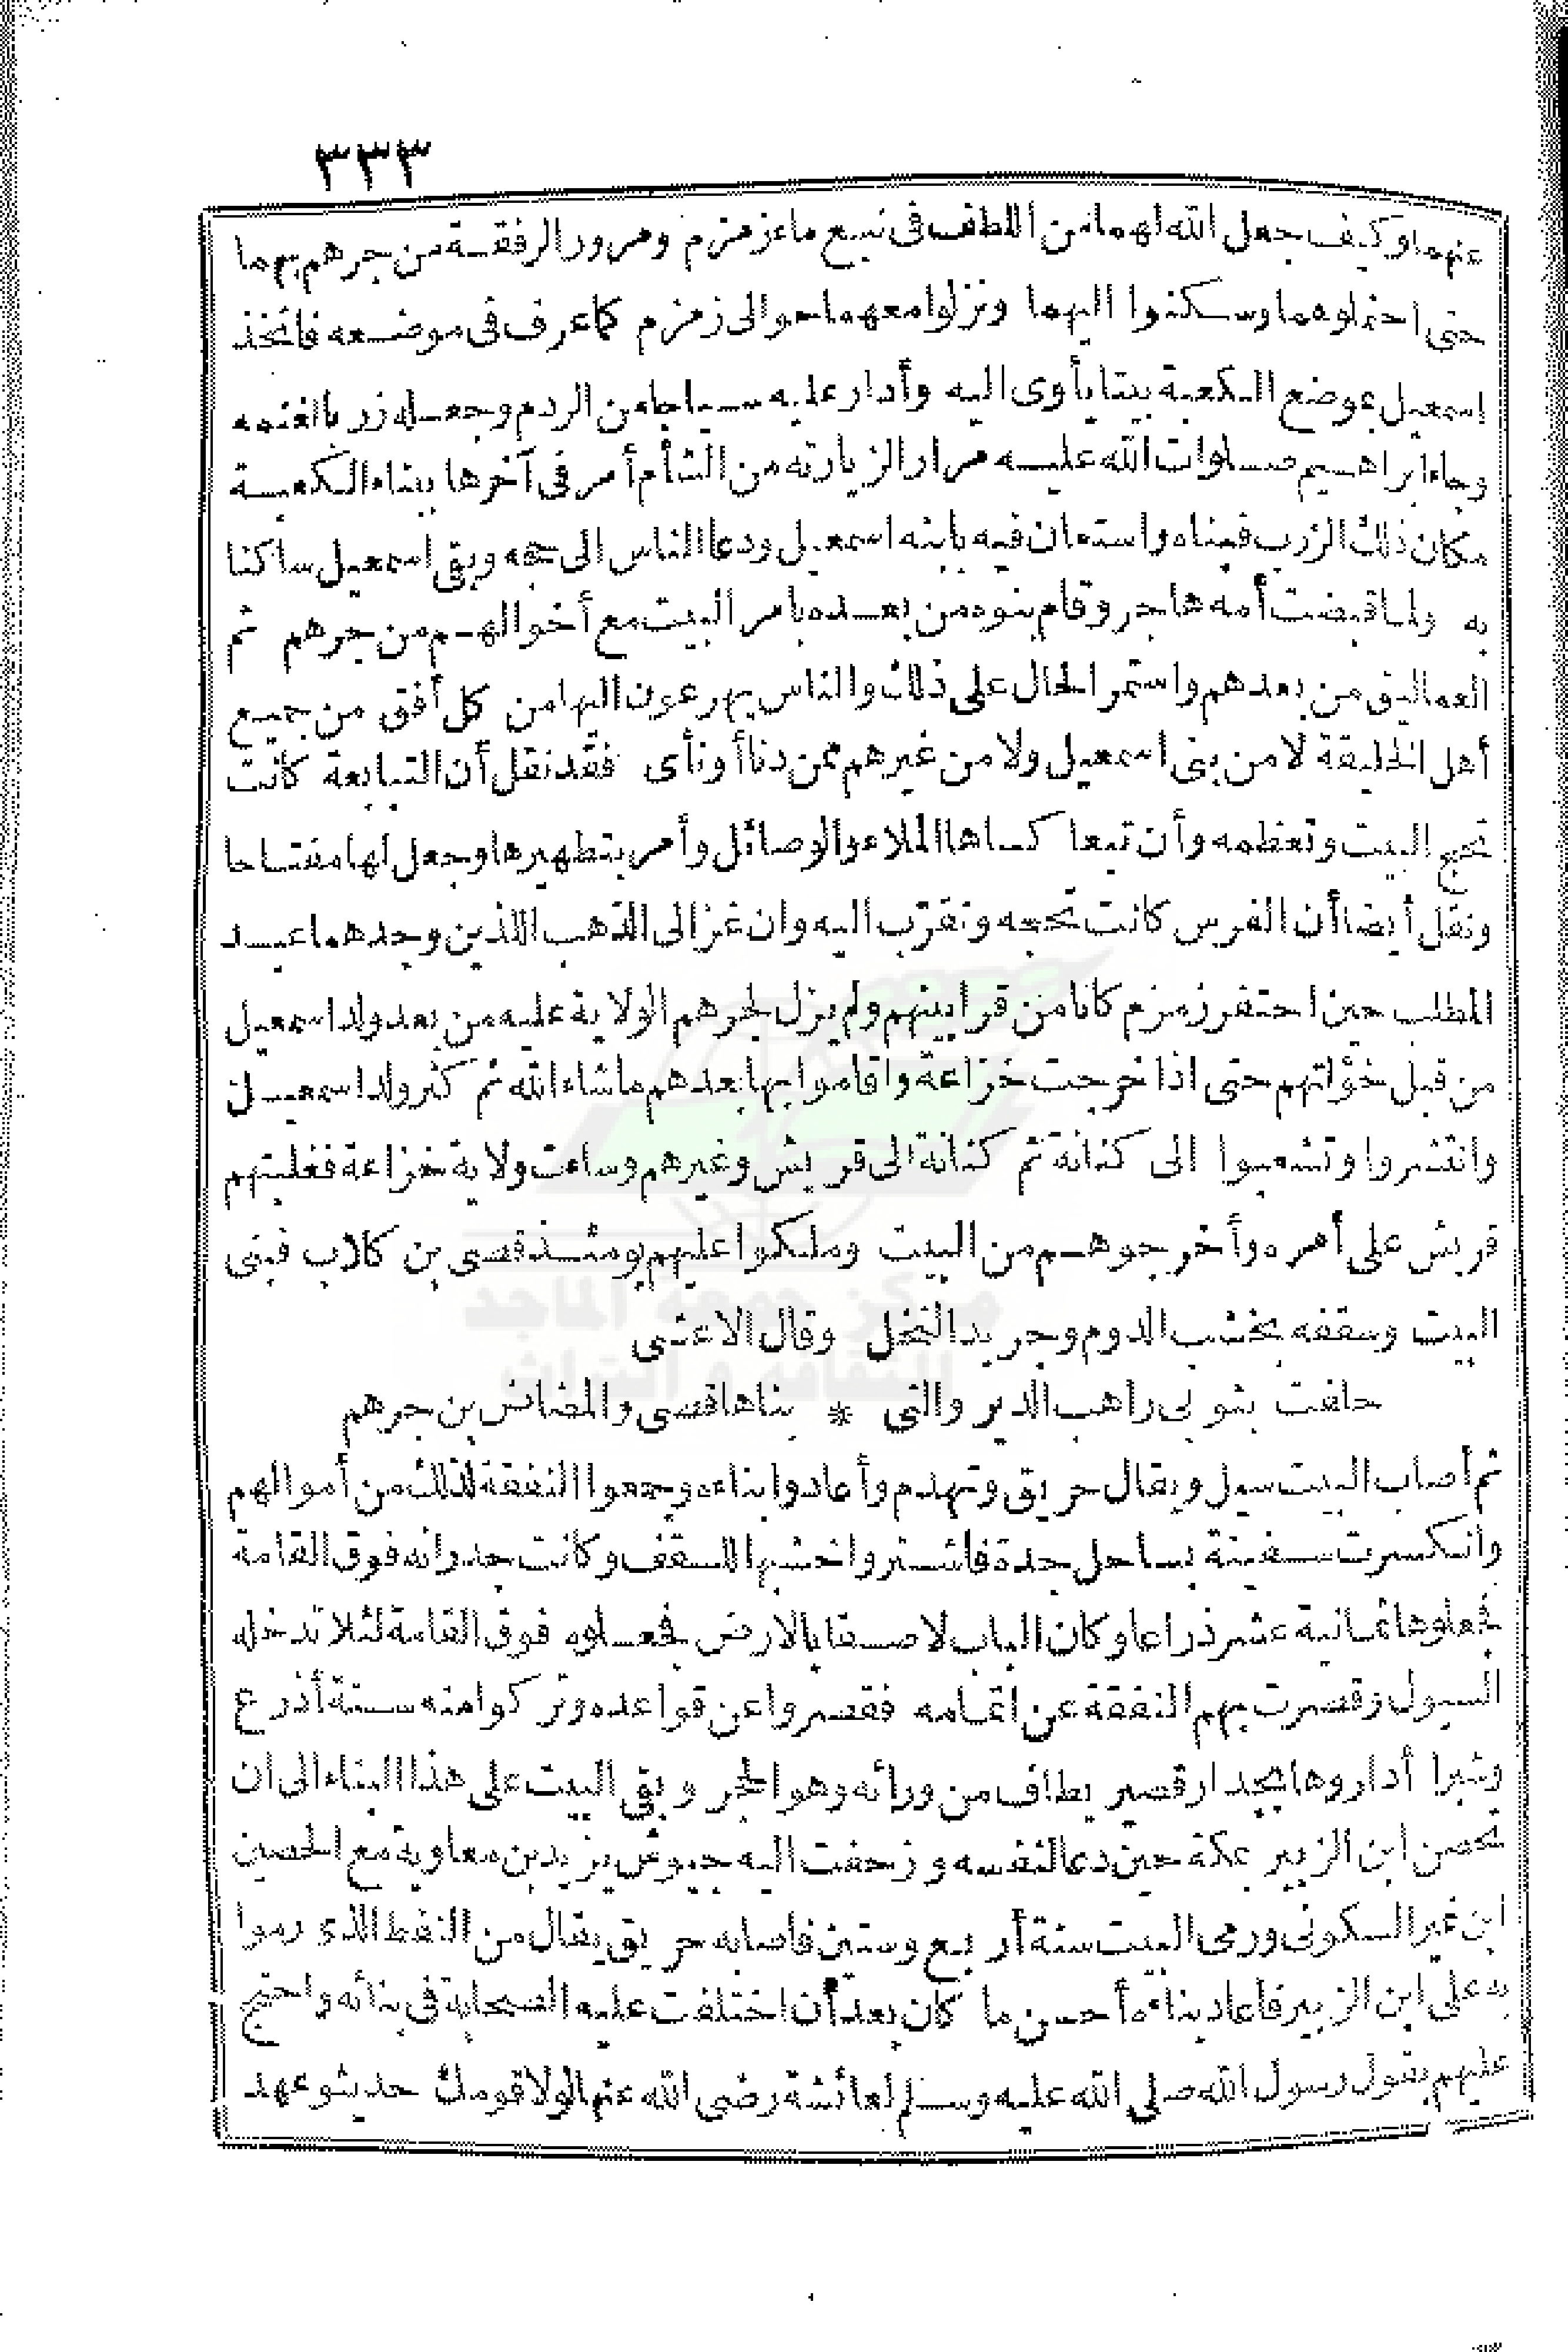 ٣٣٣
عنهما وكيف جعل الله لهما من اللطف في نبع ماء زمزم ومرور الرفقة من جرهم بهما
حتى احتملوهما وسكنوا اليهما ونزلوا معهما حوالى زمزم كما عرف في موضعه فاتخذ
اسمعيل بموضع الكعبة بيتا يأوى اليه وأدار عليه سياجا من الردم وجعله زربا لغنمه
وجاء ابراهيم صلوات الله عليه مرارا لزيارته من الشأم أمر في آخرها ببناء الكعبة
مكان ذلك الزرب فبناه واستعان فيه بابنه اسمعيل ودعا الناس الى حجه وبقى اسمعيل ساكنا
به ولما قبضت أمه هاجر وقام بنوه من بعده بامر البيت مع أخوالهم من جرهم ثم
العماليق من بعدهم واستمر الحال على ذلك والناس يهرعون اليها من كل أفق من جميع
أهل الخليقة لا من بنى اسمعيل ولا من غيرهم ممن دنا أو نأى فقد نقل أن التبابعة كانت
تحج البيت وتعظمه وأن تبعا كساها الملاء والوصائل وأمر بتطهيرها وجعل لها مفتاحا
ونقل أيضا أن الفرس كانت تحجه وتقرّب اليه وان غزالى الذهب اللذين وجدهما عبد
المطلب حين احتفر زمزم كانا من قرابينهم ولم يزل لجرهم الولاية عليه من بعد ولد اسمعيل
من قبل خؤلتهم حتى اذا خرجت خزاعة وأقاموا بها بعدهم ما شاء الله ثم كثر ولد اسمعيل
وانتشروا وتشعبوا الى كنانة ثم كنانة الى قريش وغيرهم وساءت ولاية خزاعة فغلبتهم
قريش على أمره وأخرجوهم من البيت وملكوا عليهم يومئذ قصى بن كلاب فبنى
البيت وسقفه بخشب الدوم وجريد النخل وقال الاعشى
حلفت بثوبى راهب الدير والتى * بناها قصى والمضاض بن جرهم
ثم أصاب البيت سيل ويقال حريق وتهدم وأعادوا بناءه وجمعوا النفقة لذلك من أموالهم
وانكسرت سفينة بساحل جدة فاشتروا خشبها للسقف وكانت جدرانه فوق القامة
فجعلوها ثمانية عشر ذراعا وكان الباب لاصقا بالارض فجعلوه فوق القامة لئلا تدخله
السيول وقصرت بهم النفقة عن اتمامه فقصروا عن قواعده وتركوا منه ستة أذرع
وشبرا أداروها بجدار قصير يطاف من ورائه وهو الحجر وبقى البيت على هذا البناء الى ان
تحصن ابن الزبير بمكة حين دعا لنفسه وزحفت اليه جيوش يزيد بن معاوية مع الحصين
ابن نمير السكونى ورمى البيت سنة أربع وستين فاصابه حريق يقال من النفط الذى رموا
به على ابن الزبير فاعاد بناءه أحسن ما كان بعد أن اختلفت عليه الصحابة في بنائه واحتج
عليهم بقول رسول الله صلى الله عليه وسلم لعائشة رضى الله عنها لولا قومك حديثو عهد
مركز جمعة الماجد
للثقافة و التراث